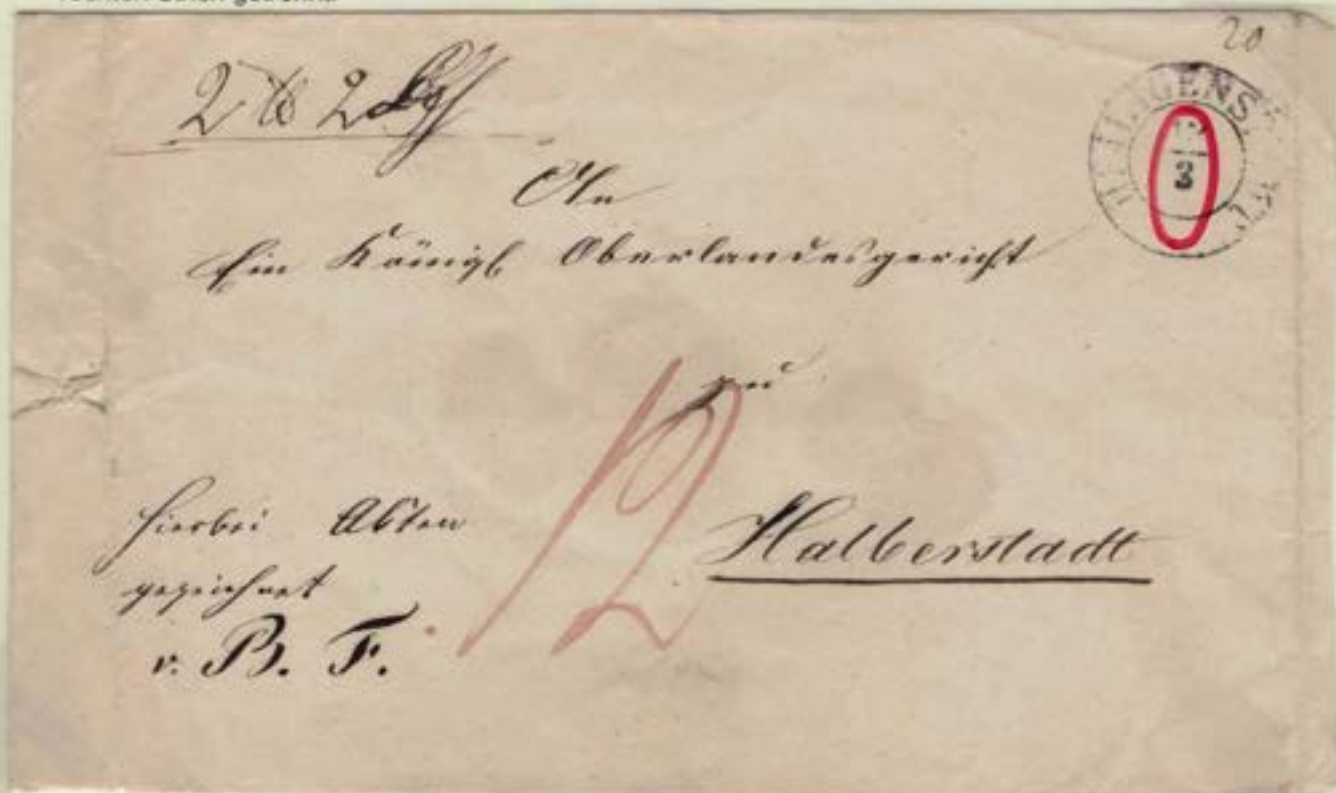 20
HEILIGENSTADT
12
3
2 ℔ 2 Lth
An
Ein Königl Oberlandesgericht
zu
Halberstadt
12
hierbei Akten
gezeichnet
v. B. F.